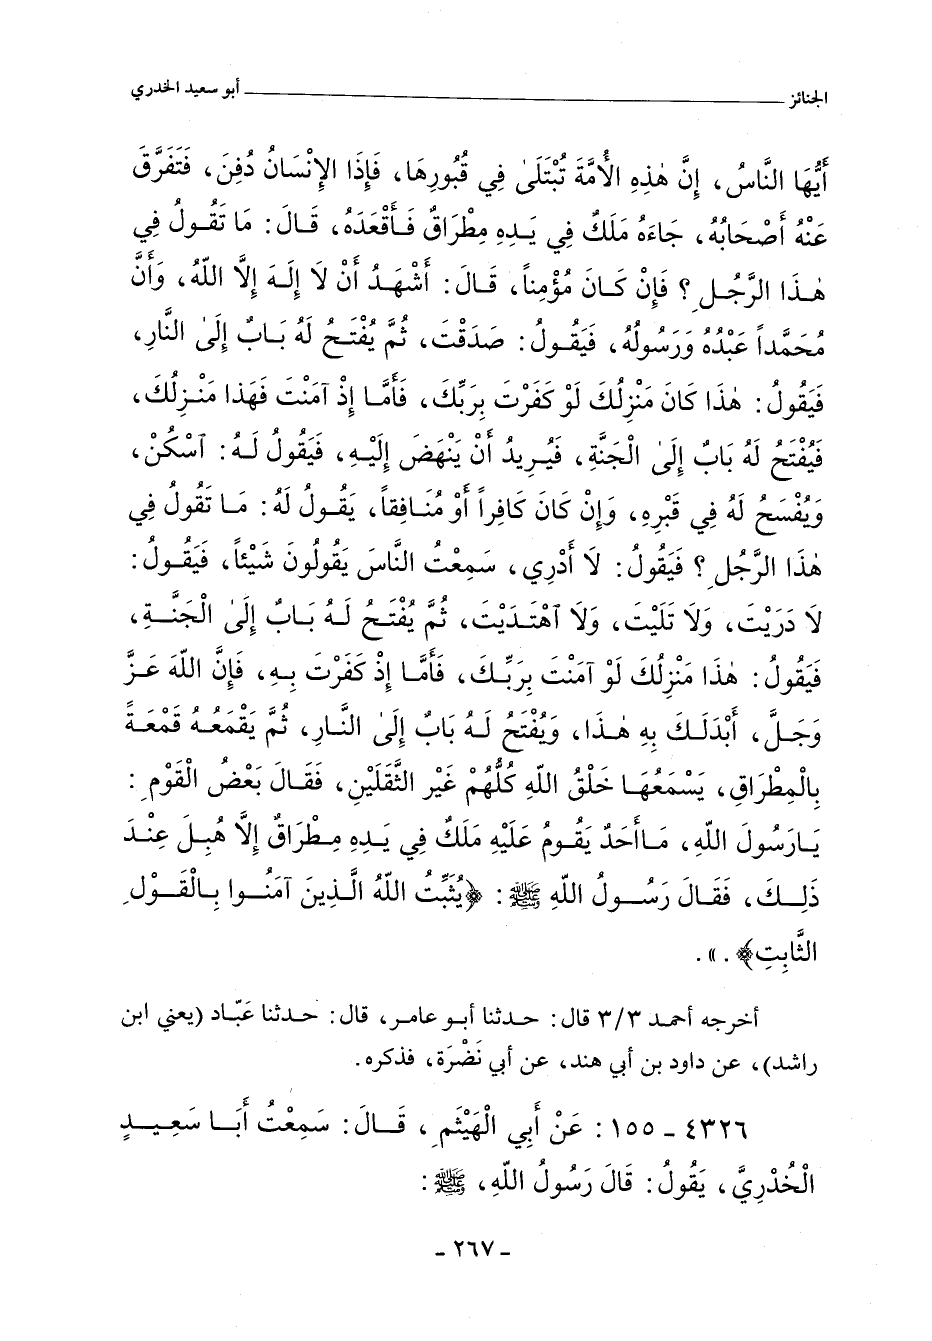 الجنائز ــــــــــــــــــــــــــــــ أبو سعيد الخدري
أَيُّهَا النَّاسُ، إِنَّ هٰذِهِ الأُمَّةَ تُبْتَلَىٰ فِي قُبُورِهَا، فَإِذَا الإِنْسَانُ دُفِنَ، فَتَفَرَّقَ
عَنْهُ أَصْحَابُهُ، جَاءَهُ مَلَكٌ فِي يَدِهِ مِطْرَاقٌ فَأَقْعَدَهُ، قَالَ: مَا تَقُولُ فِي
هٰذَا الرَّجُلِ؟ فَإِنْ كَانَ مُؤْمِناً، قَالَ: أَشْهَدُ أَنْ لَا إِلَهَ إِلاَّ اللّٰهُ، وَأَنَّ
مُحَمَّداً عَبْدُهُ وَرَسُولُهُ، فَيَقُولُ: صَدَقْتَ، ثُمَّ يُفْتَحُ لَهُ بَابٌ إِلَىٰ النَّارِ،
فَيَقُولُ: هٰذَا كَانَ مَنْزِلُكَ لَوْ كَفَرْتَ بِرَبِّكَ، فَأَمَّا إِذْ آمَنْتَ فَهَذَا مَنْزِلُكَ،
فَيُفْتَحُ لَهُ بَابٌ إِلَىٰ الْجَنَّةِ، فَيُرِيدُ أَنْ يَنْهَضَ إِلَيْهِ، فَيَقُولُ لَهُ: آسْكُنْ،
وَيُفْسَحُ لَهُ فِي قَبْرِهِ، وَإِنْ كَانَ كَافِراً أَوْ مُنَافِقاً، يَقُولُ لَهُ: مَا تَقُولُ فِي
هٰذَا الرَّجُلِ؟ فَيَقُولُ: لَا أَدْرِي، سَمِعْتُ النَّاسَ يَقُولُونَ شَيْئاً، فَيَقُولُ:
لَا دَرَيْتَ، وَلَا تَلَيْتَ، وَلَا آهْتَدَيْتَ، ثُمَّ يُفْتَحُ لَهُ بَابٌ إِلَىٰ الْجَنَّةِ،
فَيَقُولُ: هٰذَا مَنْزِلُكَ لَوْ آمَنْتَ بِرَبِّكَ، فَأَمَّا إِذْ كَفَرْتَ بِهِ، فَإِنَّ اللّٰهَ عَزَّ
وَجَلَّ، أَبْدَلَكَ بِهِ هٰذَا، وَيُفْتَحُ لَهُ بَابٌ إِلَىٰ النَّارِ، ثُمَّ يَقْمَعُهُ قَمْعَةً
بِالْمِطْرَاقِ، يَسْمَعُهَا خَلْقُ اللّٰهِ كُلُّهُمْ غَيْرَ الثَّقَلَيْنِ، فَقَالَ بَعْضُ الْقَوْمِ:
يَارَسُولَ اللّٰهِ، مَاأَحَدٌ يَقُومُ عَلَيْهِ مَلَكٌ فِي يَدِهِ مِطْرَاقٌ إِلاَّ هُبِلَ عِنْدَ
ذَلِكَ، فَقَالَ رَسُولُ اللّٰهِ ﷺ: ﴿يُثَبِّتُ اللّٰهُ الَّذِينَ آمَنُوا بِالْقَوْلِ
الثَّابِتِ﴾.».
أخرجه أحمد ٣/٣ قال: حدثنا أبو عامر، قال: حدثنا عَبّاد (يعني ابن
راشد)، عن داود بن أبي هند، عن أبي نَضْرَة، فذكره.
٤٣٢٦ - ١٥٥: عَنْ أَبِي الْهَيْثَمِ، قَالَ: سَمِعْتُ أَبَا سَعِيدٍ
الْخُدْرِيَّ، يَقُولُ: قَالَ رَسُولُ اللّٰهِ، ﷺ:
- ٢٦٧ -